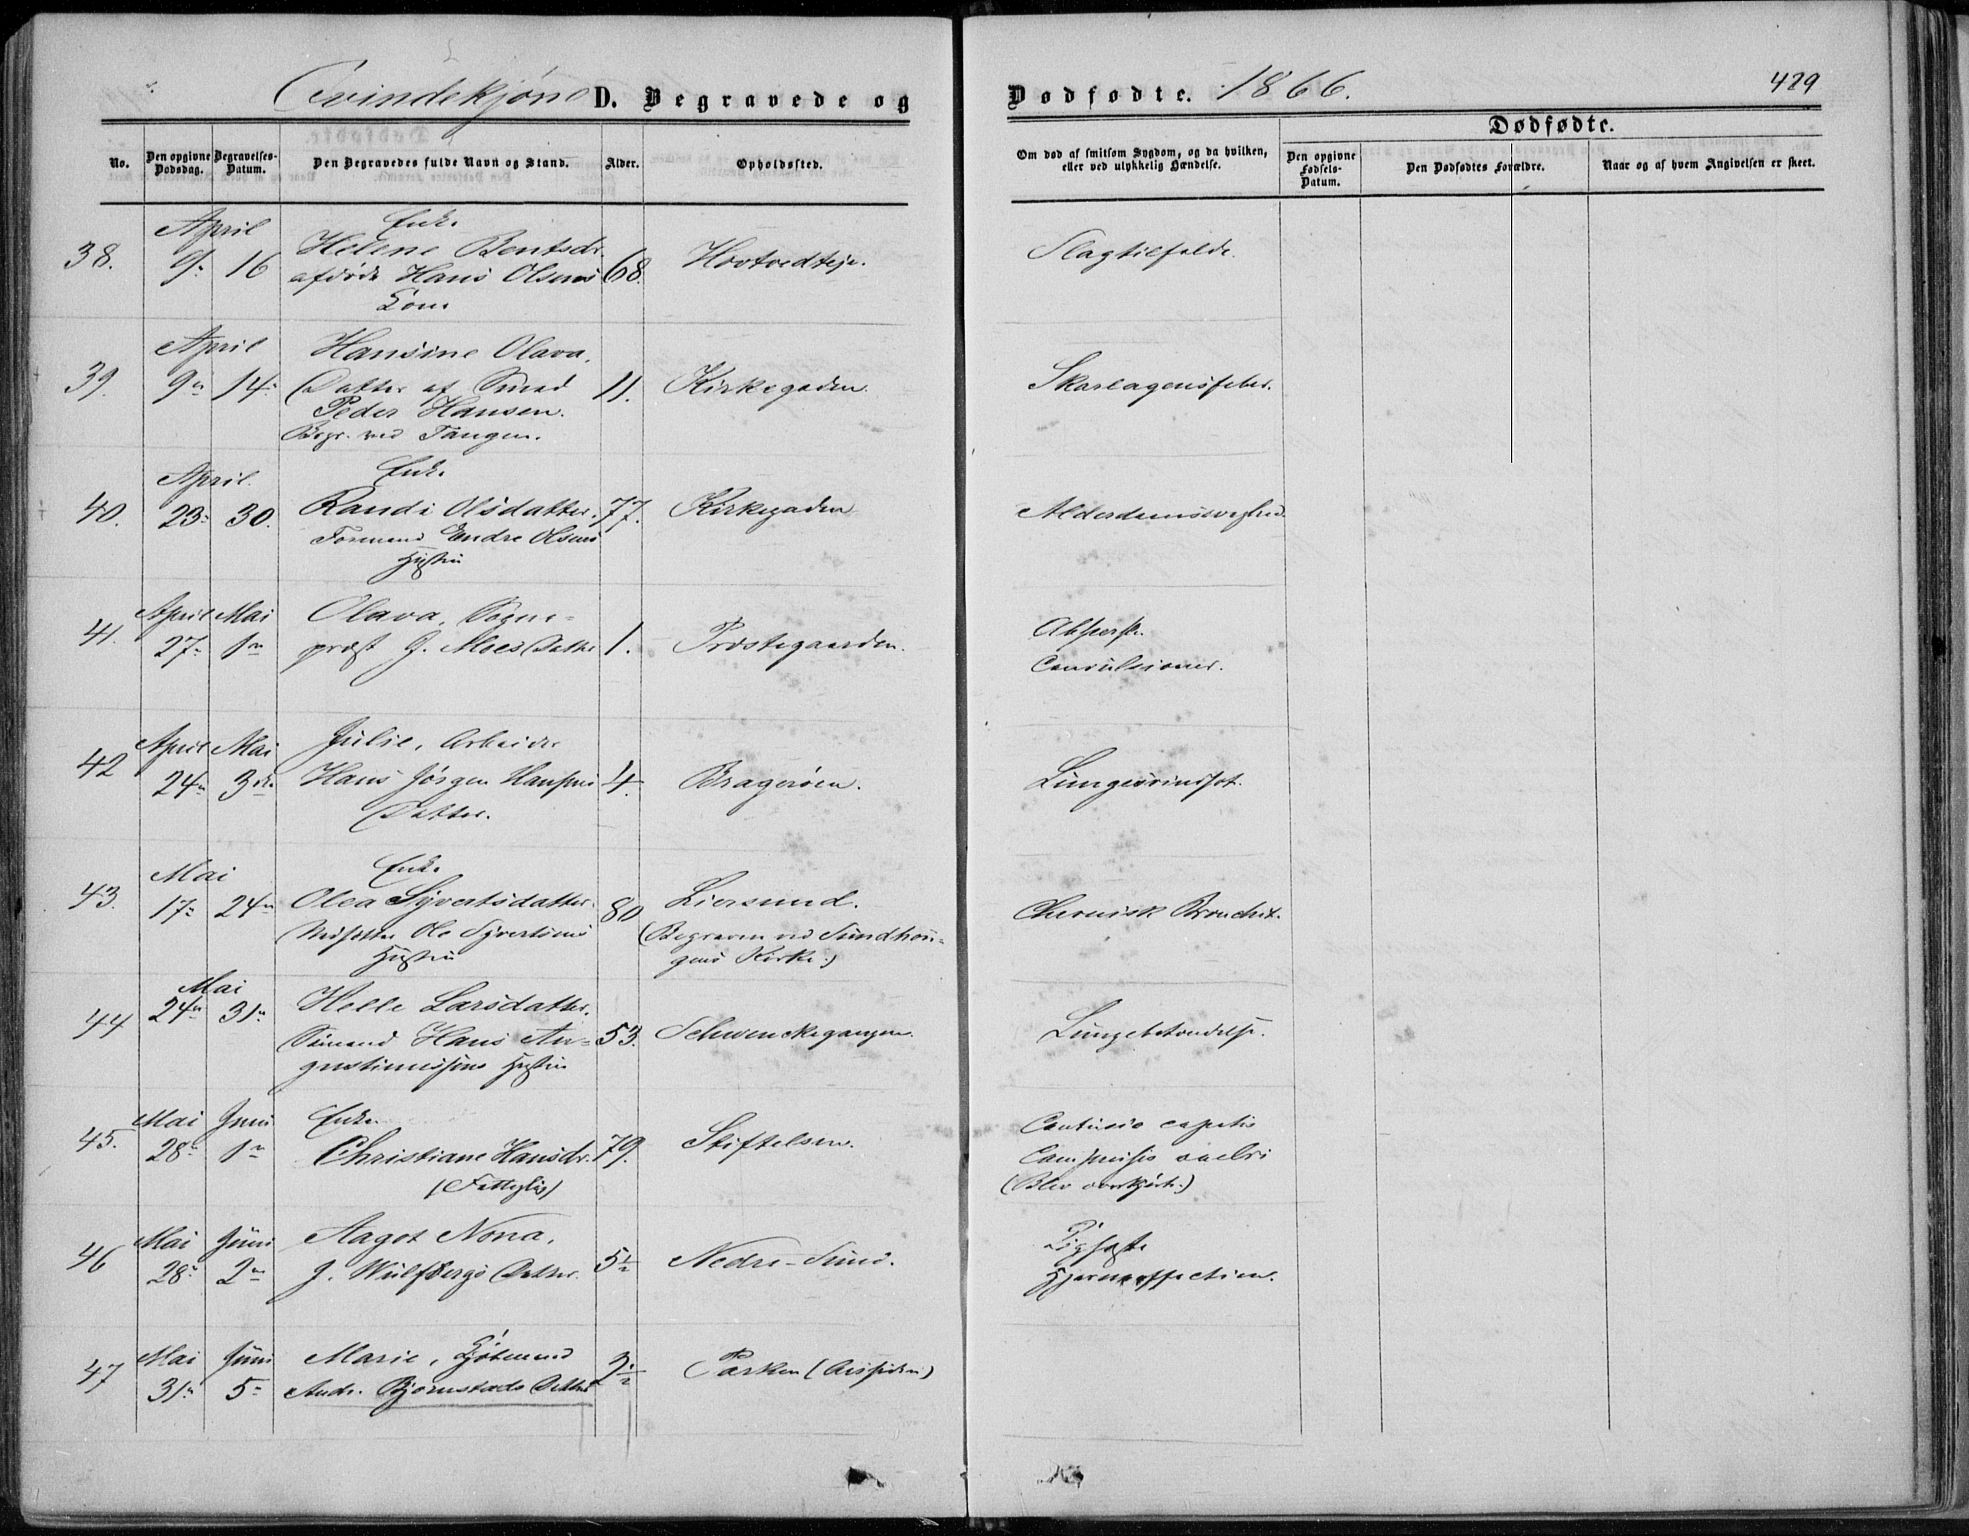 Qvindekjøn D. Begravede og Dødfødte. 1866. 429
Dødfødte.
No. Den opgivne Dødsdag. Begravelses-Datum. Den Begravedes fulde Navn og Stand. Alder. Opholdssted. Om død af smitsom Sygdom, og da hvilken, eller ved ulykkelig Hændelse. Den opgivne Fødsels-Datum. Den Dødfødtes Forældre. Naar og af hvem Angivelsen er skeet.
April Enke
38. 9de 16 Helene Bentsdr. 68. Hovtvedteje. Slagtilfælde.
afdøde Hans Olsens
Kone
April Hansine Olava,
39. 9de 14. Datter af Smed 11. Kirkegaden. Skarlagensfeber.
Peder Hansen.
Begr. ved Tangen.
April. Enke
40. 23. 30. Randi Olsdatter. 77. Kirkegaden Alderdomssvaghed.
Formand Endre Olsens
Hustru
April Mai Olava, Sogne-
41. 27. 1ste præst J. Moes Datter 1. Præstegaarden.
Convulsioner.
April Mai Julie, Arbeider
42 24de 3die Hans Jørgen Hansens 4. Bragerøen. Lungesvindsot.
Datter.
Mai Enke
43. 17. 24de Olea Syvertsdatter. 80 Liersund. Chronisk Bronchit.
Ole Syvertsens (Begraven ved Sundhou-
Hustru gens Kirke.)
Mai
44 24de 31. Helle Larsdatter. 53. Schwenckegangen. Lungebetændelse.
Sømand Hans Au-
gustinussens Hustru
Mai Juni Enke Contusio capitis
45. 28. 1ste Christiane Hansdr. 79. Stiftelsen.
(Fattiglig) (Blev overkjørt.)
Mai Juni Aagot Nona,
46 28. 2den J. Wulfsbergs Datter 5½ Nedre-Sund. Hjerneaffection.
Mai Juni Marie, Kjøbmand
47 31. 5. Andr. Bjørnstads Datter Parken